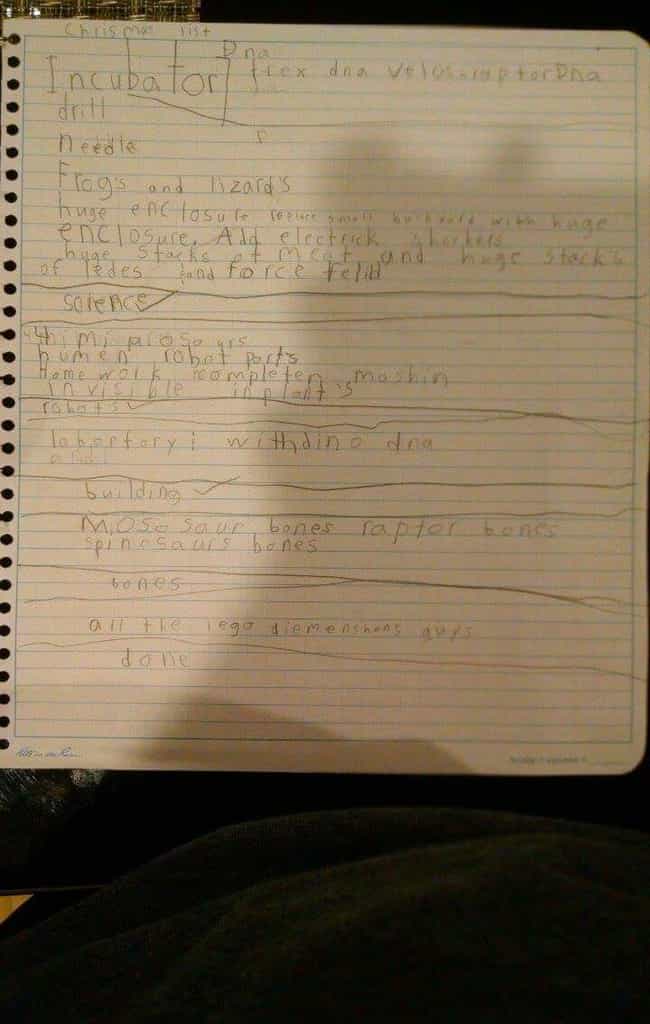 Chrisma list
Dna
Incubator trex dna Velosoraptor Dna
drill
needle
Frog's and lizard's
huge enclosure replace small backyard with huge
enclosure. Add electrick shockers
huge stacks of meat and huge stacks
of ledes and force feild
science
himi
humen robot parts
Home work completer mashin
invisible inplant's
robots
labortory: with dino dna
building
Mososaur bones raptor bones
spinosaurs bones
bones
all the lego diemenshons guys
done